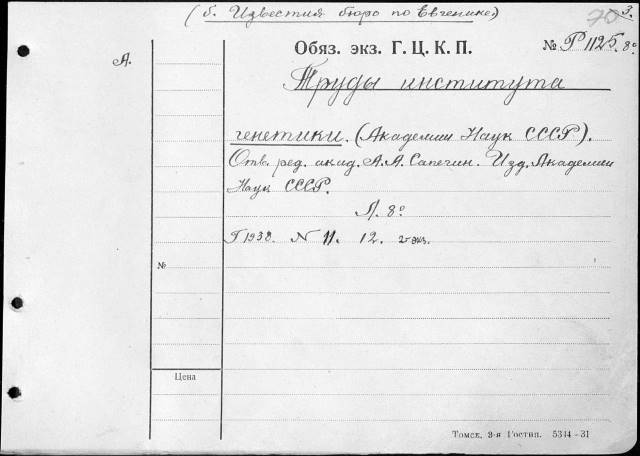 (б. Известия бюро по Евгенике)
70 3.
Обяз. экз. Г. Ц. К. П.
№ Р 1125. 8°
А.
Труды института
генетики. (Академии Наук СССР).
Отв. ред. акад. А. А. Сапегин. Изд. Академии
Наук СССР.
Л. 8°
Г 1938. N 11. 12. 2 экз.
№
Цена
Томск, 3-я Гостип. 5344-31